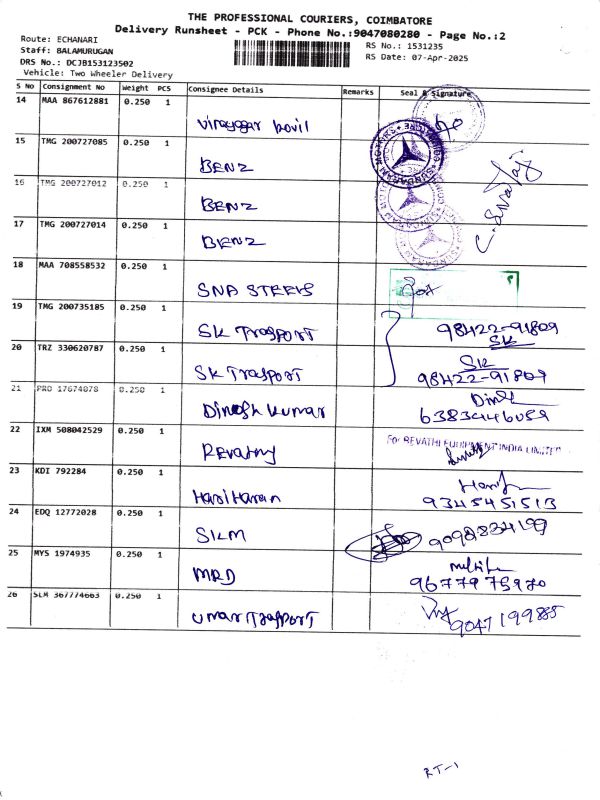 THE PROFESSIONAL COURIERS, COIMBATORE
Delivery Runsheet - PCK - Phone No.:9047080280 - Page No.:2
Route: ECHANARI
RS No.: 1531235
Staff: BALAMURUGAN
RS Date: 07-Apr-2025
DRS No.: DCJB153123502
Vehicle: Two Wheeler Delivery
S No Consignment No Weight PCS Consignee Details Remarks Seal & Signature
14 MAA 867612881 0.250 1
15 TMG 200727085 0.250 1
BENZ
16 TMG 200727012 0.250 1
BENZ
17 TMG 200727014 0.250 1
BENZ
18 MAA 708558532 0.250 1
SNA STEELS
19 TMG 200735185 0.250 1
SK Trasport 98422-91809
SK
20 TRZ 330620787 0.250 1
SK
SK Trasport 98422-91809
21 PRO 17674078 0.250 1
Dinesh kumar
22 IXM 508042529 0.250 1
For REVATHI EQUIPMENT INDIA LIMITED
Revathy
23 KDI 792284 0.250 1
Hariharan 9345451513
24 EDQ 12772028 0.250 1
SLM
25 MYS 1974935 0.250 1
MRD
26 SLM 367774663 0.250 1
umar Trasport
RT-1